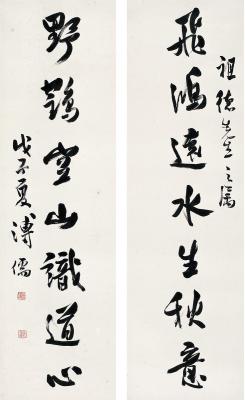 祖德先生之屬
飛鴻遠水生秋意
野鶴空山識道心
戊子夏溥儒